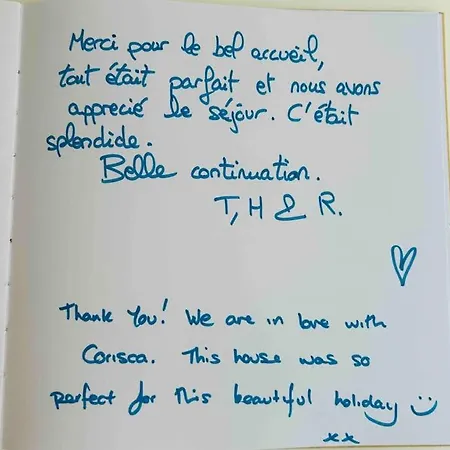 Merci pour le bel accueil,
tout était parfait et nous avons
apprecié le séjour. C'était
splendide.
Belle continuation.
T, H & R.
Thank You! We are in love with
Corisca. This house was so
perfect for this beautiful holiday
xx